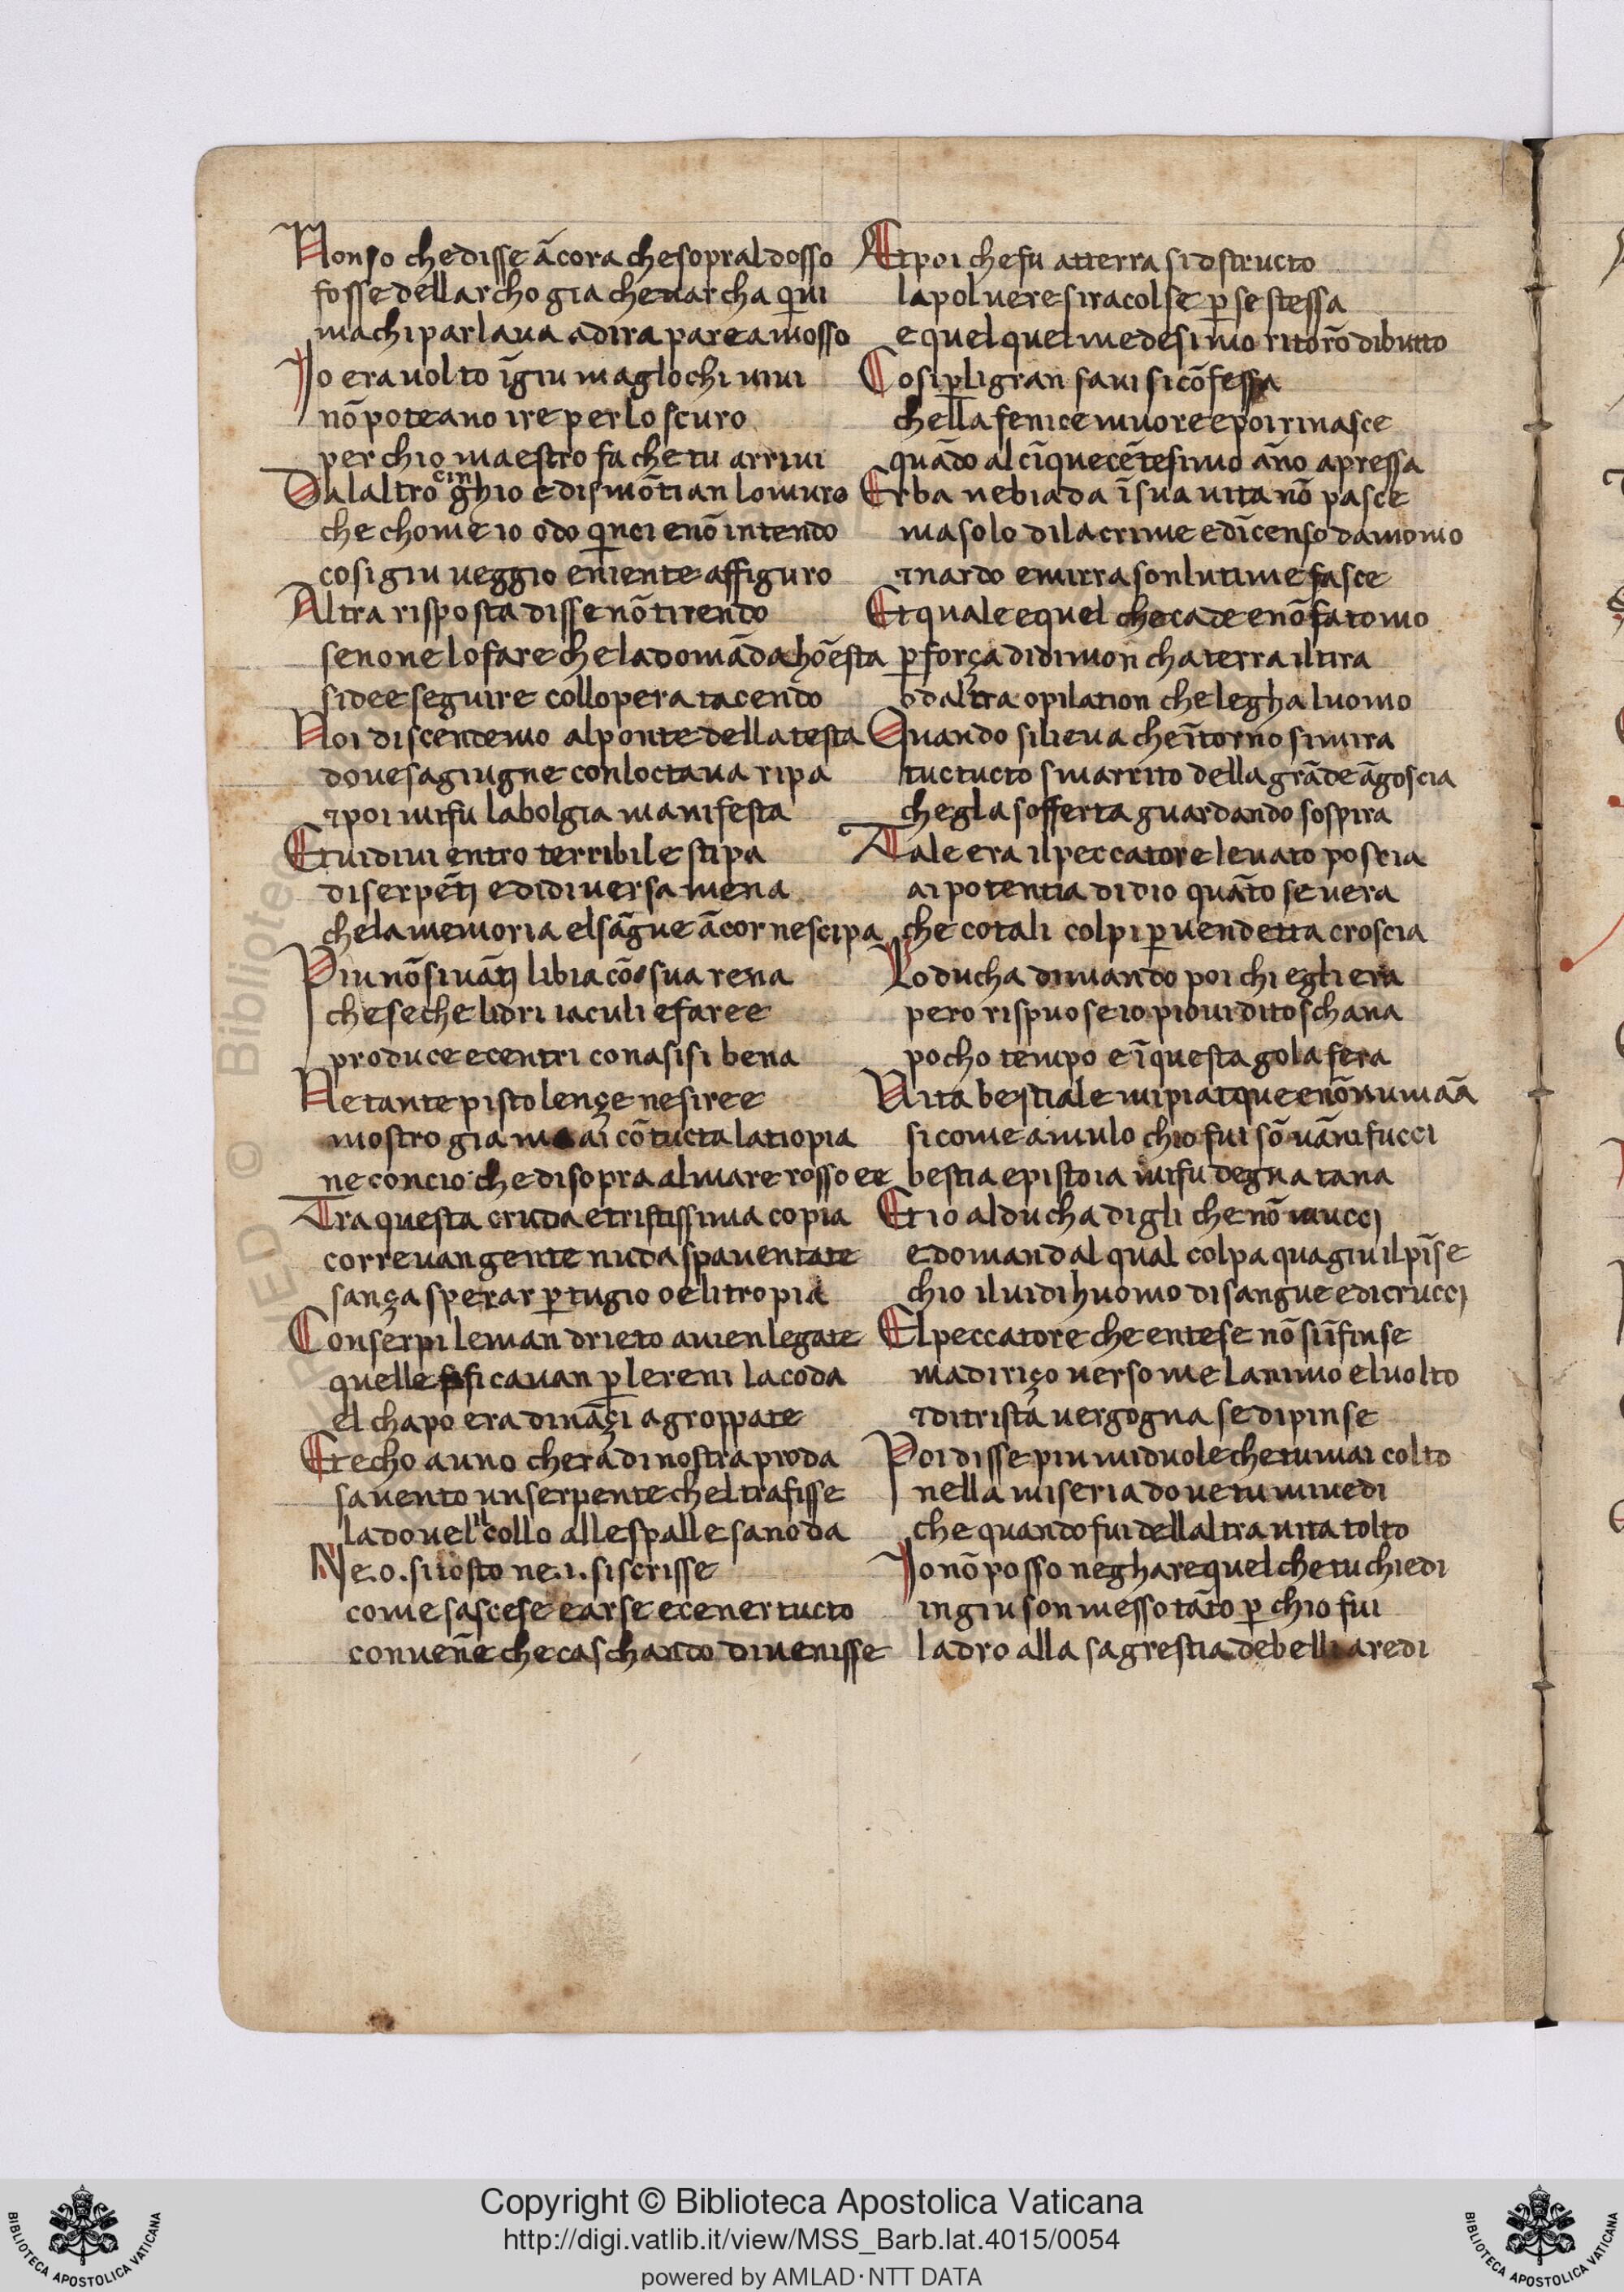 Non so che disse ācora che sopral dosso
fosse dell archo gia che uarcha quiui
ma chi parlaua ad ira parea mosso
Jo era uolto īgiu ma gl ochi uiui
nō poteano ire per lo scuro
per chio maestro fa che tu arriui
Dal altro cinghio e dismōtian lo muro
che chome io odo qinci e nō intendo
cosi giu ueggio e niente affiguro
Altra risposta disse nō ti rendo
se no ne lo fare che la domāda hōesta
si dee seguire coll opera tacendo
Noi discendemo al ponte della testa
doue sagiugne con loctaua ripa
⁊ poi mi fu la bolgia manifesta
Et uidiui entro terribile stipa
di serpētj e di diuersa mena
che la memoria el sāgue ācor ne scipa
Piu nō si uātj libia cō sua rena
che se chelidri iaculi e faree
produce e centri con asisibena
Ne tante pistolençe ne si ree
mostro gia mai cō tucta latiopia
ne con cio che di sopra al mare rosso ee
Tra questa cruda e tristissima copia
correuan gente nuda spauentate
sança sperar ptugio o elitropia
Con serpi le man drieto auien legate
quelle ficauan p le reni la coda
el chapo era dināçi agroppate
Et echo a uno chera di nostra proda
sauento un serpente chel trafisse
la doue il collo alle spalle sanoda
Ne .o. si tosto ne .i. si scrisse
come sascese e arse e cener tucto
conueñe che caschando diuenisse
Et poi che fu atterra si dstructo
la poluere si racolse p se stessa
e quel quel medesimo ritorō di butto
Cosi p li gran saui si cōfessa
che lla fenice muore e poi rinasce
quādo al cīquecētesimo āno apressa
Erba ne biada ī sua uita nō pasce
ma solo di lacrime e dīcenso damomo
⁊ nardo e mirra son lutime fasce
Et quale e quel che cade e nō sa tomo
p força di dimon cha terra il tira
o daltra opilation che legha luomo
Quando si lieua che ītorno si mira
tuctucto smarrito della grāde āgoscia
che gla sofferta guardando sospira
Tale era il peccatore leuato poscia
ai potentia di dio quāto se uera
che cotali colpi p uendetta croscia
Lo ducha dimando poi chi egli era
pero rispuose io pioui di toschana
pocho tempo e ī questa gola fera
Uita bestiale mi piatque e nō numaā
si come a mulo chio fui sō uāni fucci
bestia e pistoia mi fu degna tana
Et io al ducha digli che nō muccj
e domandal qual colpa qua giu il pīse
chio il uidi huomo di sangue e di cruccj
El peccatore che entese nō si īfinse
ma diriço uerso me lanimo el uolto
⁊ di trista uergogna se dipinse
Poi disse piu mi duole che tu mai colto
nella miseria doue tu mi uedi
che quando fui dellaltra uita tolto
Jo nō posso neghare quel che tu chiedi
in giu son messo tāto p chio fui
ladro alla sagrestia de belli aredi
Copyright © Biblioteca Apostolica Vaticana
http://digi.vatlib.it/view/MSS_Barb.lat.4015/0054
powered by AMLAD·NTT DATA
BIBLIOTECA APOSTOLICA VATICANA
BIBLIOTECA APOSTOLICA VATICANA